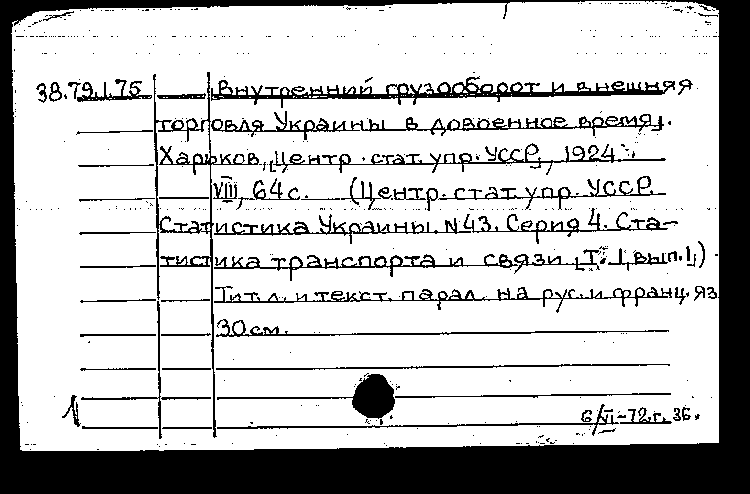 38.79.1.75 Внутренний грузооборот и внешняя
торговля Украины в довоенное время.
Харьков, Центр. стат. упр. УССР, 1924.
VIII, 64 с. (Центр. стат. упр. УССР.
Статистика Украины. N43. Серия 4. Ста-
тистика транспорта и связи, Т. I, вып. I.)
Тит. л. и текст. парал. на рус. и франц. яз
30 см.
6/VI-72 г. 36.